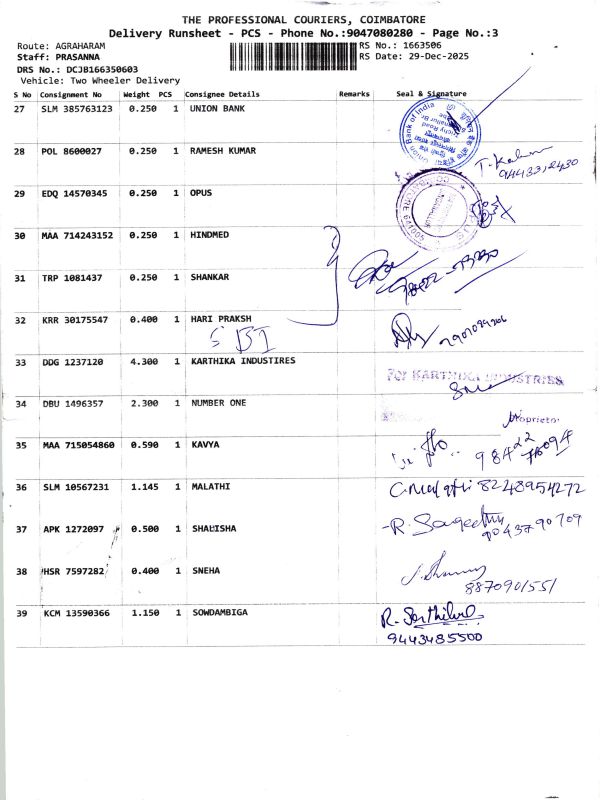 THE PROFESSIONAL COURIERS, COIMBATORE
Delivery Runsheet - PCS - Phone No.:9047080280 - Page No.:3
Route: AGRAHARAM
RS No.: 1663506
Staff: PRASANNA
RS Date: 29-Dec-2025
DRS No.: DCJB166350603
Vehicle: Two Wheeler Delivery
S No Consignment No Weight PCS Consignee Details Remarks Seal & Signature
27 SLM 385763123 0.250 1 UNION BANK
Union Bank of India
28 POL 8600027 0.250 1 RAMESH KUMAR
29 EDQ 14570345 0.250 1 OPUS
30 MAA 714243152 0.250 1 HINDMED
31 TRP 1081437 0.250 1 SHANKAR
32 KRR 30175547 0.400 1 HARI PRAKSH
SBI
33 DDG 1237120 4.300 1 KARTHIKA INDUSTIRES
For KARTHIKA INDUSTRIES
34 DBU 1496357 2.300 1 NUMBER ONE
Proprietor
35 MAA 715054860 0.590 1 KAVYA
36 SLM 10567231 1.145 1 MALATHI
8248954272
37 APK 1272097 0.500 1 SHALISHA
9043790709
38 HSR 7597282 0.400 1 SNEHA
8870901551
39 KCM 13590366 1.150 1 SOWDAMBIGA
R. Senthilvel
9443485500